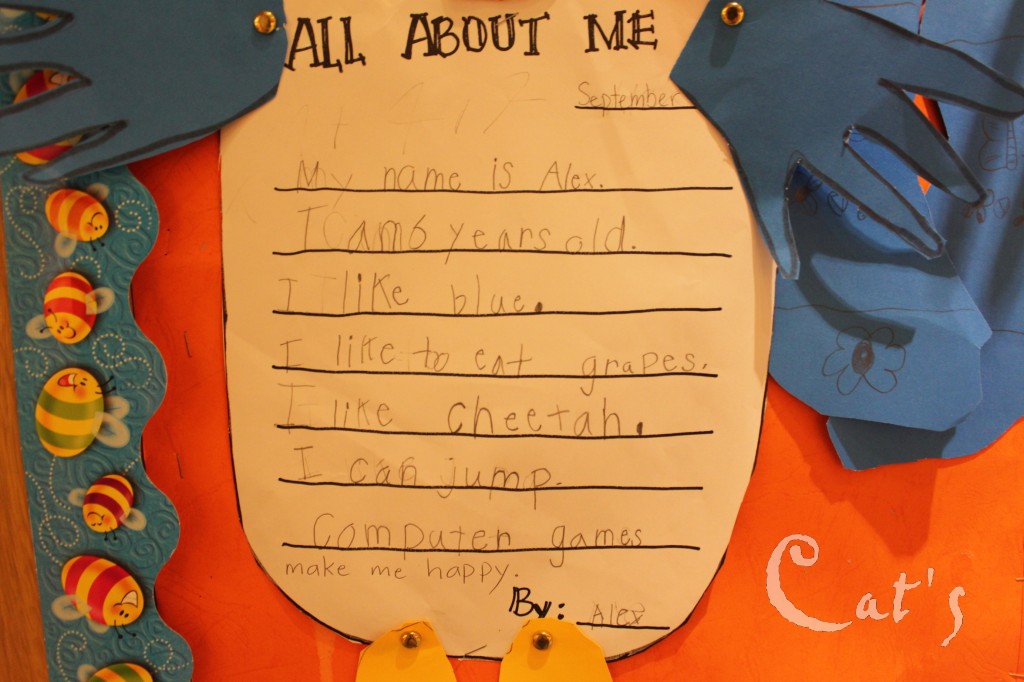 ALL ABOUT ME
September
My name is Alex.
I am 6 years old.
I like blue.
I like to eat grapes.
I like cheetah.
I can jump.
Computer games
make me happy.
By: Alex
Cat's